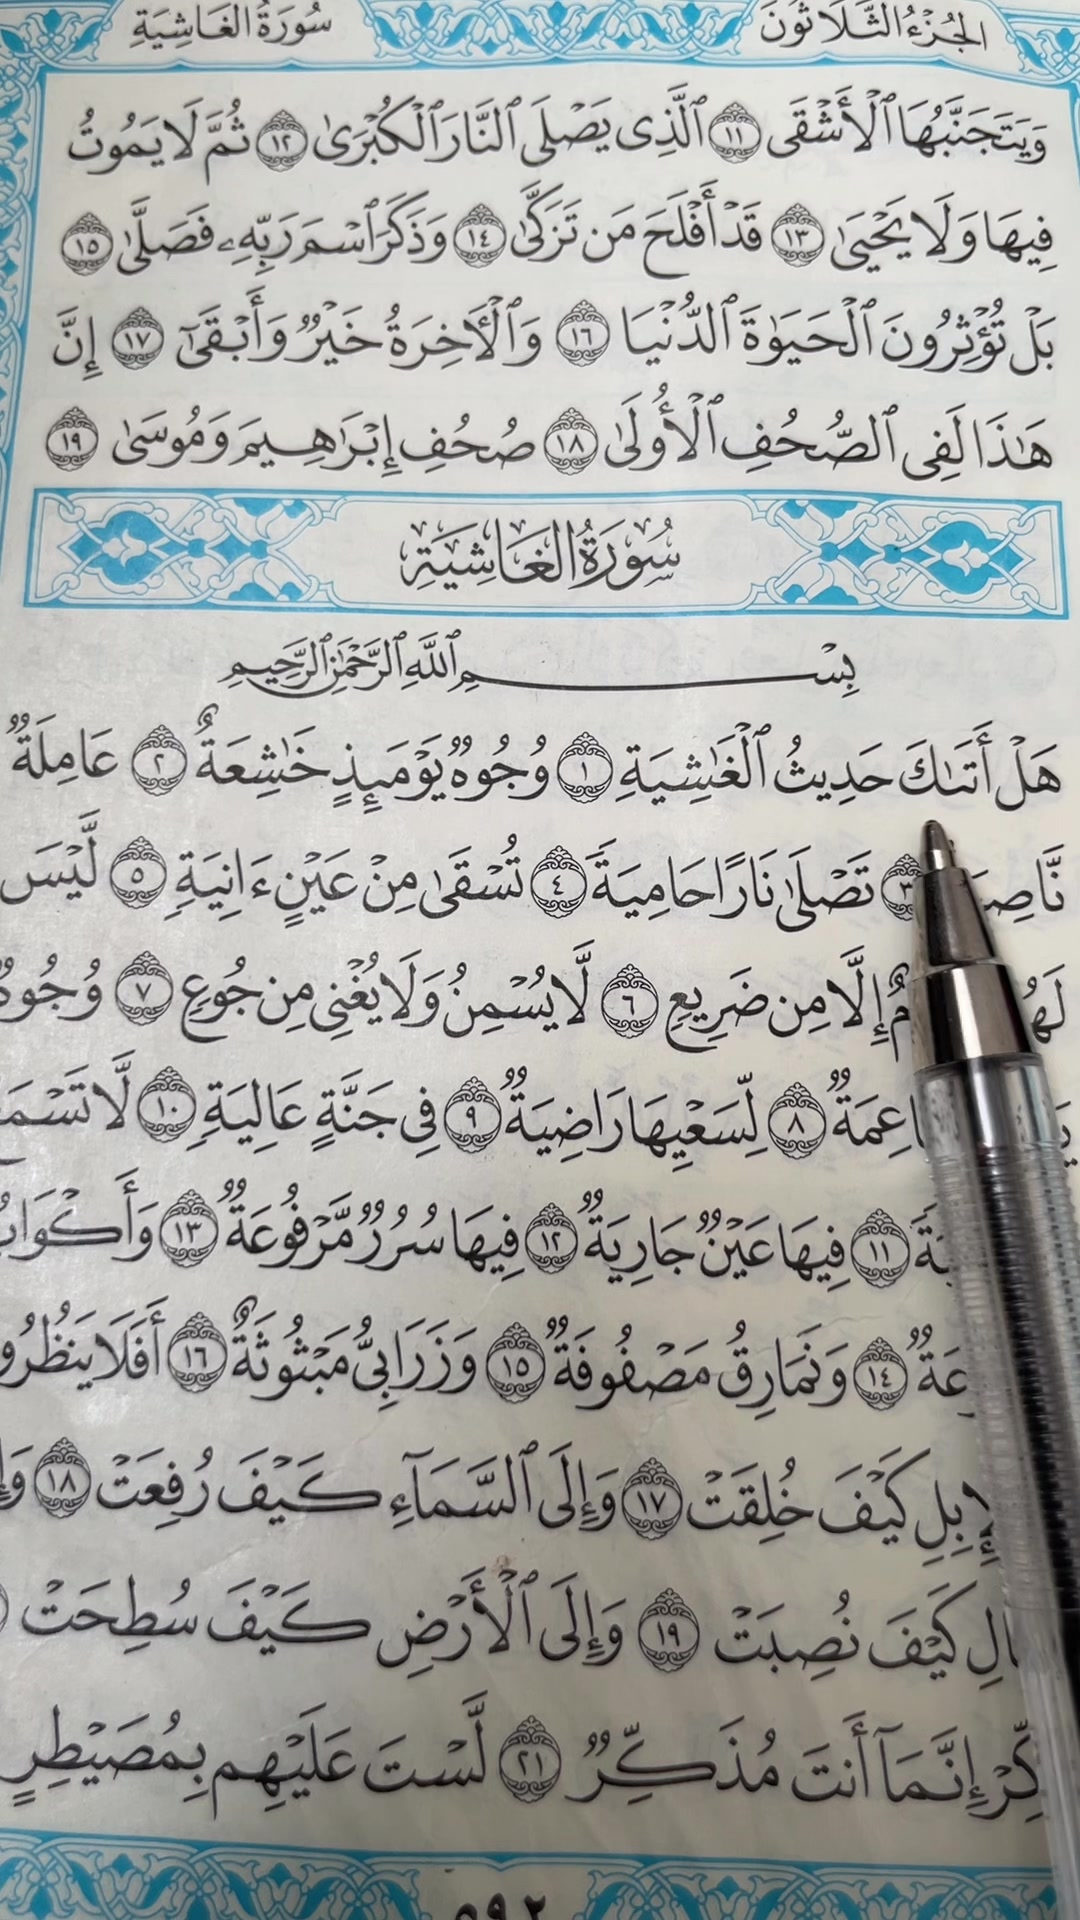 الجُزْءُ الثَّلَاثُونَ سُورَةُ الغَاشِيَةِ
وَيَتَجَنَّبُهَا ٱلْأَشْقَى ١١ ٱلَّذِى يَصْلَى ٱلنَّارَ ٱلْكُبْرَىٰ ١٢ ثُمَّ لَا يَمُوتُ
فِيهَا وَلَا يَحْيَىٰ ١٣ قَدْ أَفْلَحَ مَن تَزَكَّىٰ ١٤ وَذَكَرَ ٱسْمَ رَبِّهِۦ فَصَلَّىٰ ١٥
بَلْ تُؤْثِرُونَ ٱلْحَيَوٰةَ ٱلدُّنْيَا ١٦ وَٱلْأَخِرَةُ خَيْرٌ وَأَبْقَىٰٓ ١٧ إِنَّ
هَٰذَا لَفِى ٱلصُّحُفِ ٱلْأُولَىٰ ١٨ صُحُفِ إِبْرَٰهِيمَ وَمُوسَىٰ ١٩
سُورَةُ الغَاشِيَةِ
بِسْمِ ٱللَّهِ ٱلرَّحْمَٰنِ ٱلرَّحِيمِ
هَلْ أَتَىٰكَ حَدِيثُ ٱلْغَٰشِيَةِ ١ وُجُوهٌ يَوْمَئِذٍ خَٰشِعَةٌ ٢ عَامِلَةٌ
٣ تَصْلَىٰ نَارًا حَامِيَةً ٤ تُسْقَىٰ مِنْ عَيْنٍ ءَانِيَةٍ ٥ لَّيْسَ
إِلَّا مِن ضَرِيعٍ ٦ لَّا يُسْمِنُ وَلَا يُغْنِى مِن جُوعٍ ٧
٨ لِّسَعْيِهَا رَاضِيَةٌ ٩ فِى جَنَّةٍ عَالِيَةٍ ١٠ لَّا
١١ فِيهَا عَيْنٌ جَارِيَةٌ ١٢ فِيهَا سُرُرٌ مَّرْفُوعَةٌ ١٣
١٤ وَنَمَارِقُ مَصْفُوفَةٌ ١٥ وَزَرَابِىُّ مَبْثُوثَةٌ ١٦
كَيْفَ خُلِقَتْ ١٧ وَإِلَى ٱلسَّمَآءِ كَيْفَ رُفِعَتْ ١٨
كَيْفَ نُصِبَتْ ١٩ وَإِلَى ٱلْأَرْضِ كَيْفَ سُطِحَتْ
إِنَّمَآ أَنتَ مُذَكِّرٌ ٢١ لَّسْتَ عَلَيْهِم بِمُصَيْطِرٍ
٥٩٢